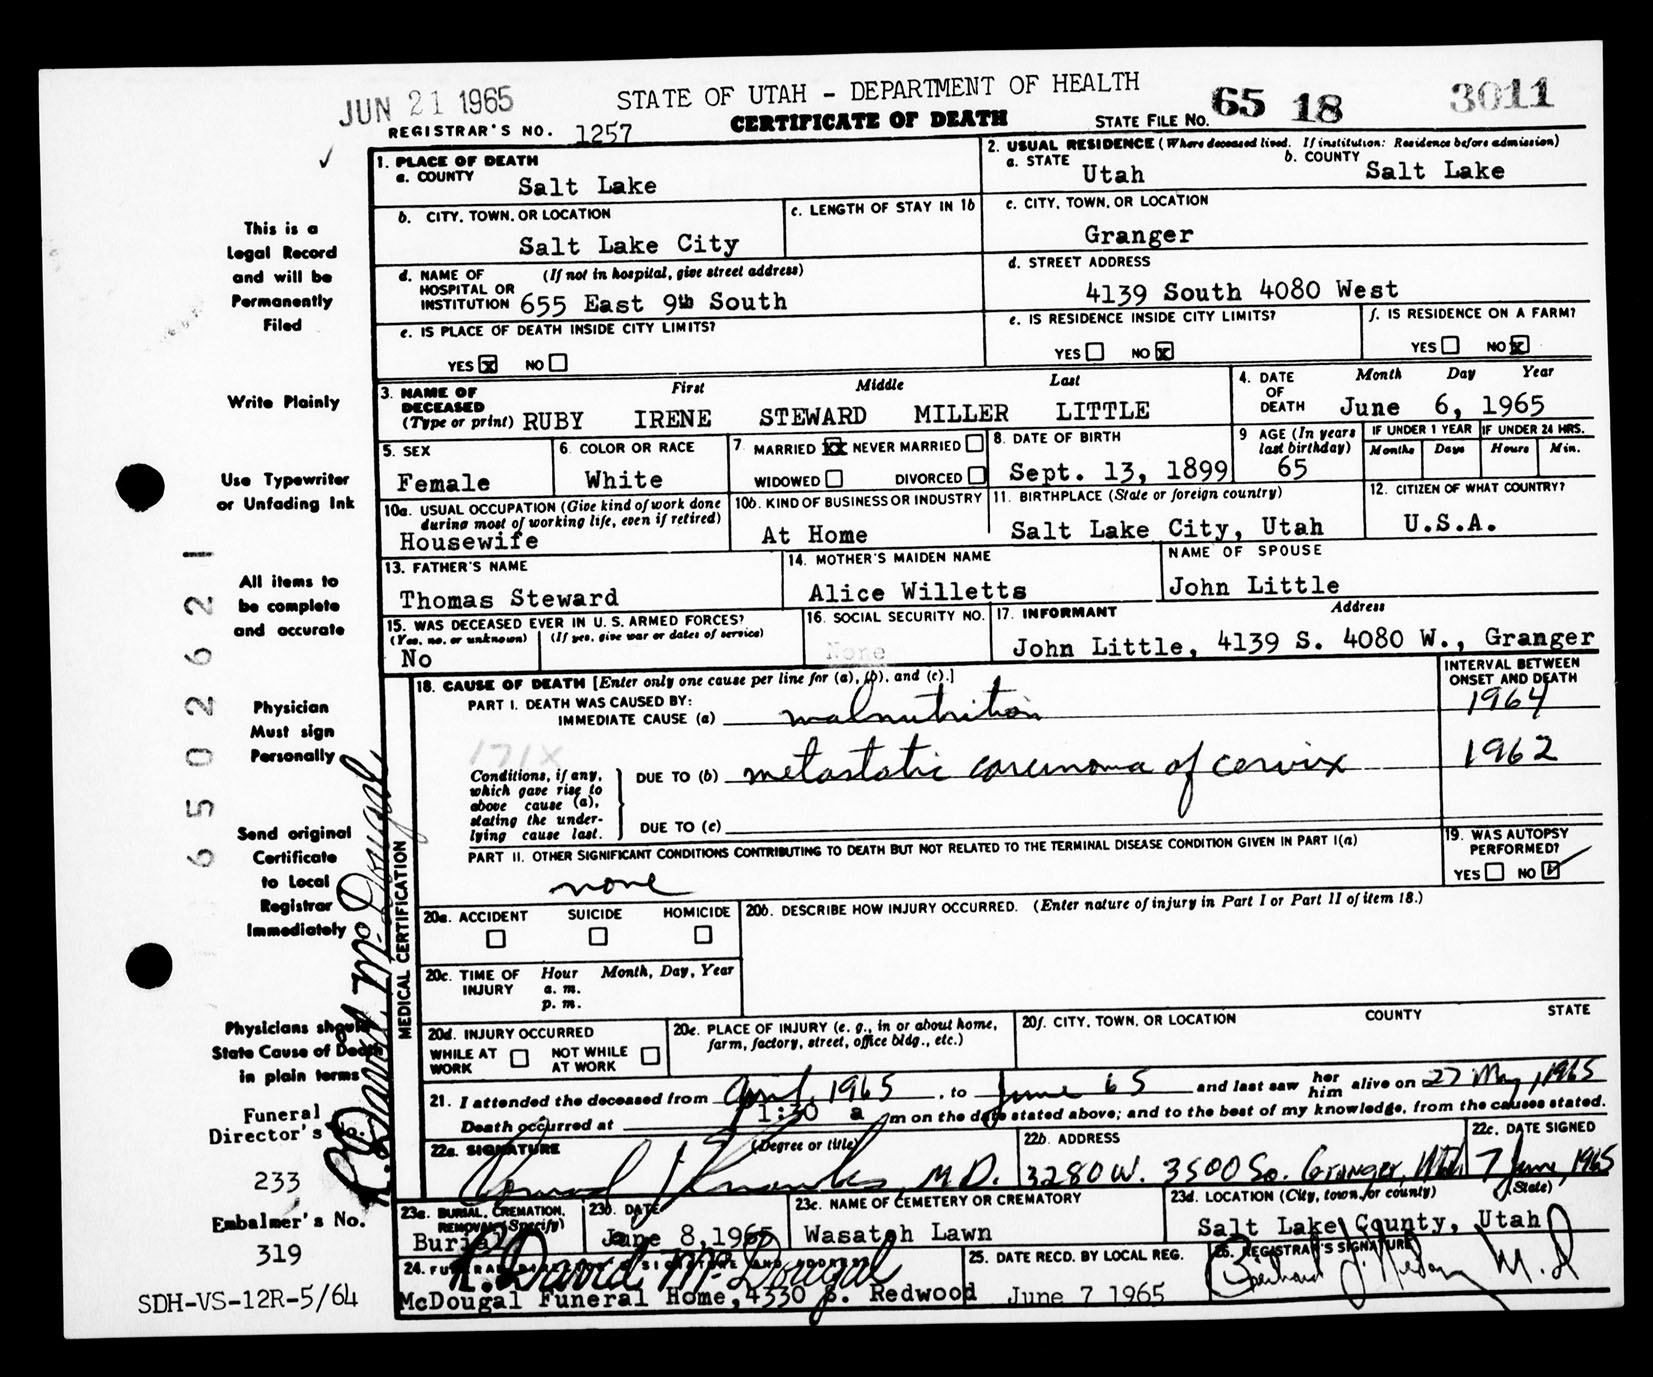 JUN 21 1965
STATE OF UTAH - DEPARTMENT OF HEALTH
CERTIFICATE OF DEATH
STATE FILE NO. 65 18 3011
REGISTRAR'S NO. 1257
1. PLACE OF DEATH
a. COUNTY
Salt Lake
2. USUAL RESIDENCE (Where deceased lived. If institution: Residence before admission)
a. STATE Utah
b. COUNTY Salt Lake
b. CITY, TOWN, OR LOCATION
Salt Lake City
c. LENGTH OF STAY IN 1b
c. CITY, TOWN, OR LOCATION
Granger
d. NAME OF HOSPITAL OR INSTITUTION (If not in hospital, give street address)
655 East 9th South
d. STREET ADDRESS
4139 South 4080 West
e. IS PLACE OF DEATH INSIDE CITY LIMITS?
YES X NO
e. IS RESIDENCE INSIDE CITY LIMITS?
YES NO X
f. IS RESIDENCE ON A FARM?
YES NO X
3. NAME OF DECEASED (Type or print)
First Middle Last
RUBY IRENE STEWARD MILLER LITTLE
4. DATE OF DEATH
Month Day Year
June 6, 1965
5. SEX
Female
6. COLOR OR RACE
White
7. MARRIED XX NEVER MARRIED
WIDOWED DIVORCED
8. DATE OF BIRTH
Sept. 13, 1899
9 AGE (In years last birthday)
65
IF UNDER 1 YEAR
Months Days
IF UNDER 24 HRS.
Hours Min.
10a. USUAL OCCUPATION (Give kind of work done during most of working life, even if retired)
Housewife
10b. KIND OF BUSINESS OR INDUSTRY
At Home
11. BIRTHPLACE (State or foreign country)
Salt Lake City, Utah
12. CITIZEN OF WHAT COUNTRY?
U.S.A.
13. FATHER'S NAME
Thomas Steward
14. MOTHER'S MAIDEN NAME
Alice Willetts
NAME OF SPOUSE
John Little
15. WAS DECEASED EVER IN U. S. ARMED FORCES?
(Yes, no, or unknown) (If yes, give war or dates of service)
No
16. SOCIAL SECURITY NO.
None
17. INFORMANT Address
John Little, 4139 S. 4080 W., Granger
MEDICAL CERTIFICATION
18. CAUSE OF DEATH [Enter only one cause per line for (a), (b), and (c).]
INTERVAL BETWEEN ONSET AND DEATH
PART I. DEATH WAS CAUSED BY:
IMMEDIATE CAUSE (a) malnutrition 1964
171X
Conditions, if any, which gave rise to above cause (a), stating the underlying cause last.
DUE TO (b) metastatic carcinoma of cervix 1962
DUE TO (c)
PART II. OTHER SIGNIFICANT CONDITIONS CONTRIBUTING TO DEATH BUT NOT RELATED TO THE TERMINAL DISEASE CONDITION GIVEN IN PART I(a)
none
19. WAS AUTOPSY PERFORMED?
YES NO
20a. ACCIDENT SUICIDE HOMICIDE
20b. DESCRIBE HOW INJURY OCCURRED. (Enter nature of injury in Part I or Part II of item 18.)
20c. TIME OF INJURY
Hour Month, Day, Year
a. m.
p. m.
20d. INJURY OCCURRED
WHILE AT WORK NOT WHILE AT WORK
20e. PLACE OF INJURY (e. g., in or about home, farm, factory, street, office bldg., etc.)
20f. CITY, TOWN, OR LOCATION COUNTY STATE
21. I attended the deceased from April, 1965, to June 65 and last saw her him alive on 27 May, 1965
Death occurred at 1:30 a m on the date stated above; and to the best of my knowledge, from the causes stated.
22a. SIGNATURE (Degree or title)
M.D.
22b. ADDRESS
3280 W. 3500 So. Granger, Utah
22c. DATE SIGNED
7 June, 1965
23a. BURIAL, CREMATION, REMOVAL (Specify)
Burial
23b. DATE
June 8, 1965
23c. NAME OF CEMETERY OR CREMATORY
Wasatch Lawn
23d. LOCATION (City, town, or county) (State)
Salt Lake County, Utah
24. FUNERAL DIRECTOR'S SIGNATURE AND ADDRESS
R. David McDougal
McDougal Funeral Home, 4330 S. Redwood
25. DATE RECD. BY LOCAL REG.
June 7 1965
26. REGISTRAR'S SIGNATURE
M.D
This is a
Legal Record
and will be
Permanently
Filed
Write Plainly
Use Typewriter
or Unfading Ink
All items to
be complete
and accurate
Physician
Must sign
Personally
Send original
Certificate
to Local
Registrar
Immediately
Physicians should
State Cause of Death
in plain terms
Funeral
Director's No.
233
Embalmer's No.
319
SDH-VS-12R-5/64
R. David McDougal
65026221